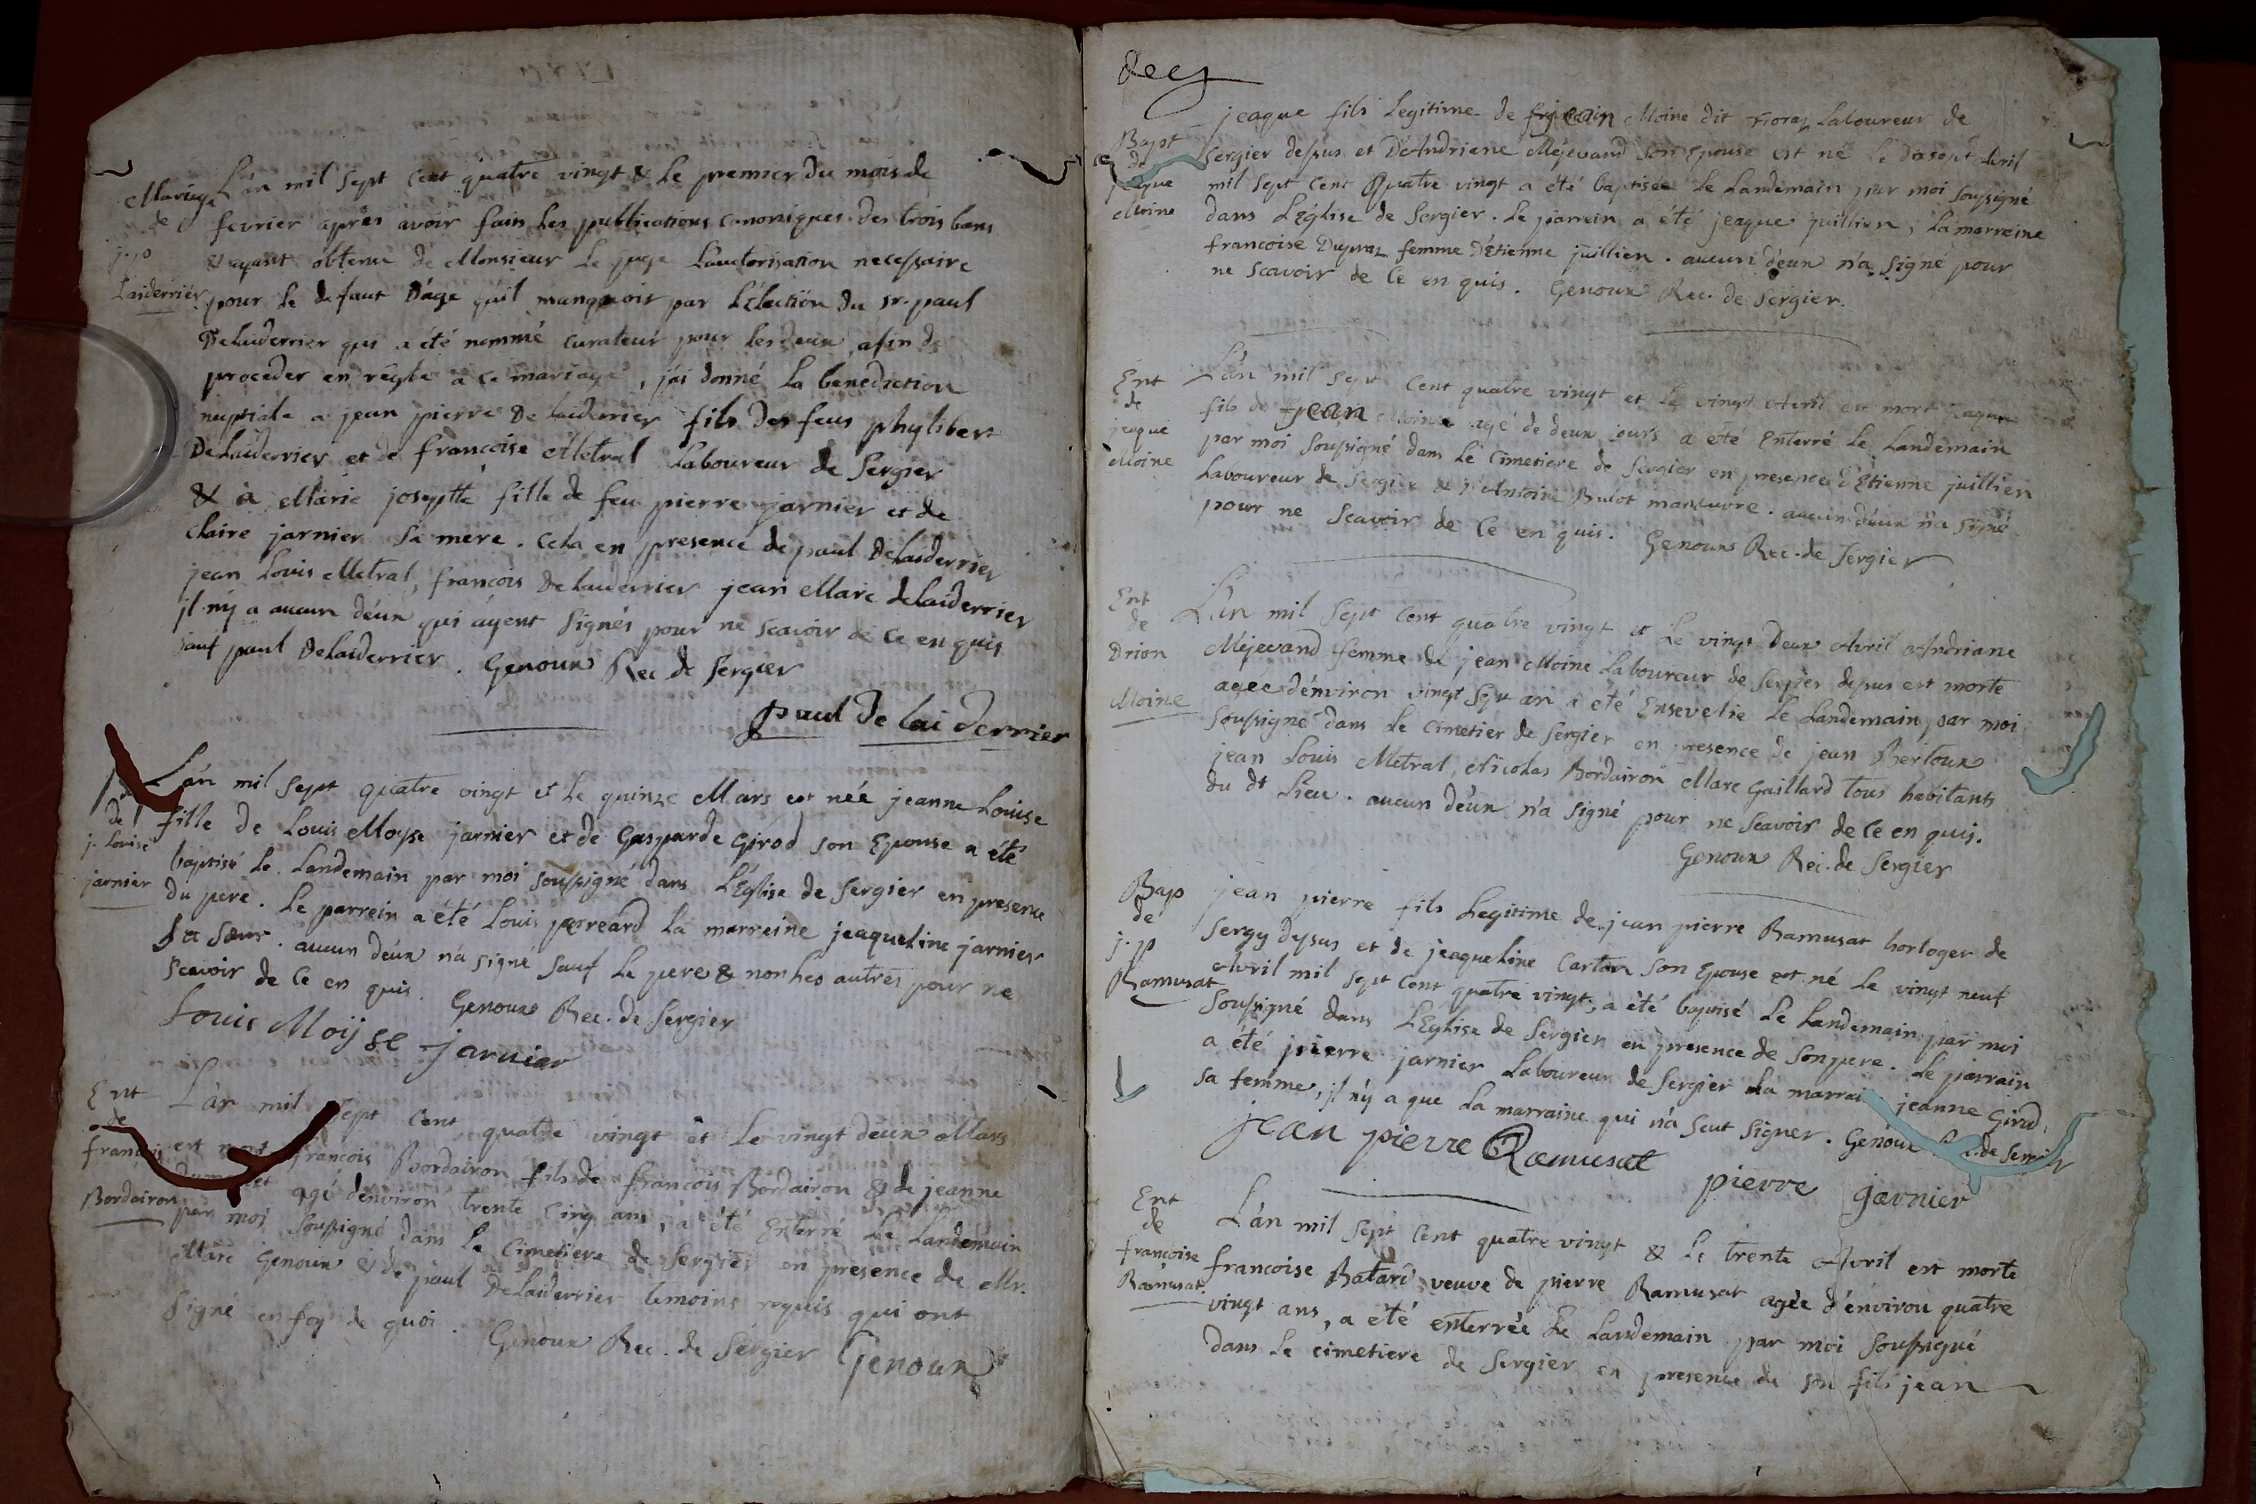 Mariage
de
j. p
Laiderrier
L'an mil sept cent quatre vingt & le premier du mois de
fevrier après avoir fait les publications canoniques des trois bans
& ayant obtenu de Monsieur le juge l'autorisation necessaire
pour le defaut d'age qu'il manquoit par l'élection du sr. paul
Delaiderrier qui a été nommé curateur pour les deux, afin de
proceder en règle à ce mariage, j'ai donné la benediction
nuptiale a jean pierre Delaiderrier fils des feus phylibert
Delaiderrier et de francoise Metral Laboureur de Sergier
& à Marie josephte fille de feu pierre jarnier et de
Claire jarnier sa mere. Cela en presence de paul Delaiderrier
jean Louis Metral, francois Delaiderrier jean Marc delaiderrier
il n'y a aucun d'eux qui ayent signés pour ne scavoir de ce enquis
sauf paul Delaiderrier. Genoux Rec. de Sergier
paul De lai derrier
de
j. Louise
jarnier
L'an mil sept quatre vingt et le quinze Mars est née jeanne Louise
fille de Louis Moyse jarnier et de Gasparde Girod son Epouse a été
baptisé le Landemain par moi soussigné dans l'Eglise de Sergier en presence
du pere. Le parrein a été Louis perreard la marreine jeaqueline jarnier
sa sœur. aucun d'eux n'a signé sauf le pere & non les autres pour ne
scavoir de ce en quis. Genoux Rec. de Sergier
Louis Moijse jarnier
Ent
de
francois
Bordairon
L'an mil sept cent quatre vingt et le vingt deux Mars
est mort francois Bordairon fils de francois Bordairon & de jeanne
agé d'environ trente cinq ans, a été Enterré le Landemain
par moi soussigné dans le Cimetiere de Sergier en presence de Mr.
Marc Genoux & de paul Delaiderrier temoins requis qui ont
signé en foy de quoi. Genoux Rec. de Sergier Genoux
Rec
Bapt
de
jeaque
Moine
jeaque fils Legitime de jean Moine dit Laboureur de
Sergier dessus et D'Andriane Méjevand son Epouse est né le dixsept Avril
mil sept cent quatre vingt a été baptisée le Landemain par moi soussigné
dans l'Eglise de Sergier. Le parrein a été jeaque juillien, La marreine
francoise Dupraz femme d'Etienne juillien. aucun d'eux n'a signé pour
ne scavoir de ce en quis. Genoux Rec. de Sergier.
Ent
de
jeaque
Moine
L'an mil sept cent quatre vingt et le vingt Avril est mort jeaque
fils de jean Moine agé de deux jours a été Enterré le Landemain
par moi soussigné dans le Cimetiere de Sergier en presence d'Etienne juillien
Laboureur de Sergier & d'Antoine manœuvre. aucun d'eux n'a signé
pour ne scavoir de ce en quis. Genoux Rec. de Sergier
Ent
de
Drion
Moine
L'an mil sept cent quatre vingt et le vingt Deux Avril Andriane
Méjevand femme de jean Moine Laboureur de Sergier dessus est morte
agée d'environ vingt sept an a été Ensevelie le Landemain par moi
soussigné dans le Cimetier de Sergier en presence de jean Bertoux
jean Louis Metral, Nicolas Bordairon Marc Gaillard tous habitants
du dt Lieu. aucun d'eux n'a signé pour ne scavoir de ce en quis.
Genoux Rec. de Sergier
Bap
de
j. p
Ramusat
jean pierre fils Legitime de jean pierre Ramusat horloger de
Sergy dessus et de jeaqueline Carton son Epouse est né le vingt neuf
Avril mil sept cent quatre vingt, a été baptisé le Landemain par moi
soussigné dans l'Eglise de Sergier en presence de son pere. Le parrain
a été pierre jarnier Laboureur de Sergier La marrai jeanne Girod,
sa femme, il n'y a que la marraine qui n'a sçut signer. Genoux Rec. de Sergier
jean pierre Ramusat
pierre garnier
Ent
de
francoise
Ramusat
L'an mil sept cent quatre vingt & le trente Avril est morte
francoise Batard veuve de pierre Ramusat agée d'environ quatre
vingt ans, a été enterrée le Landemain par moi soussigné
dans le cimetiere de Sergier en presence de son fils jean